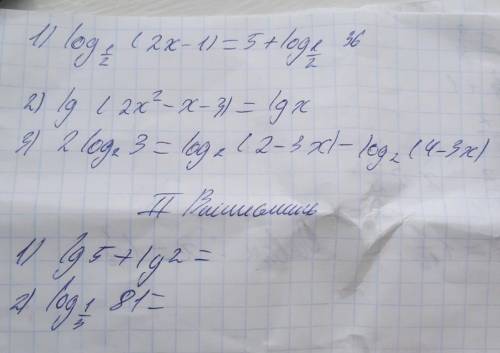 1) log_{1/2} (2x-1) = 5 + log_{1/2} 36
2) lg (2x²-x-3) = lg x
3) 2 log₂ 3 = log₂ (2-3x) - log₂ (4-3x)
II Вычислить
1) lg 5 + lg 2 =
2) log_{1/3} 81 =